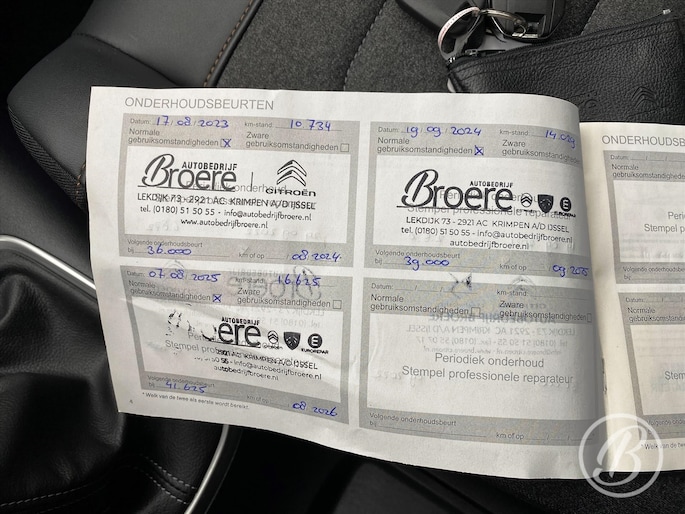 ONDERHOUDSBEURTEN
Datum: 17/08/2023 km-stand: 10 734
Normale gebruiksomstandigheden ☒ Zware gebruiksomstandigheden ☐
AUTOBEDRIJF
Broere CITROËN
LEKDIJK 73 - 2921 AC KRIMPEN A/D IJSSEL
tel. (0180) 51 50 55 - info@autobedrijfbroere.nl
www.autobedrijfbroere.nl
Volgende onderhoudsbeurt
bij 36.000 km of op 08/2024
Datum: 19/09/2024 km-stand: 14.029
Normale gebruiksomstandigheden ☒ Zware gebruiksomstandigheden ☐
AUTOBEDRIJF
Broere EUROREPAR
LEKDIJK 73 - 2921 AC KRIMPEN A/D IJSSEL
Stempel professionele reparateur
tel. (0180) 51 50 55 - info@autobedrijfbroere.nl
www.autobedrijfbroere.nl
Volgende onderhoudsbeurt
bij 39.000 km of op 09/2025
Datum: 07/08/2025 km-stand: 16.625
Normale gebruiksomstandigheden ☒ Zware gebruiksomstandigheden ☐
AUTOBEDRIJF
Broere EUROREPAR
2921 AC KRIMPEN A/D IJSSEL
Stempel
50 55 - info@autobedrijfbroere.nl
autobedrijfbroere.nl
Volgende onderhoudsbeurt
bij 41.625 08/2026
* Welk van de twee als eerste wordt bereikt.
Datum: km-stand:
Normale gebruiksomstandigheden ☐ Zware gebruiksomstandigheden ☐
Periodiek onderhoud
Stempel professionele reparateur
Volgende onderhoudsbeurt
bij km of op
ONDERHOUDSB
Datum:
Normale
gebruiksomstandigh
Periodi
Stempel prof
Volgende onderhoudsbeurt
bij
Datum:
Normale
gebruiksomstandigh
Stempel
Volgende
bij
B